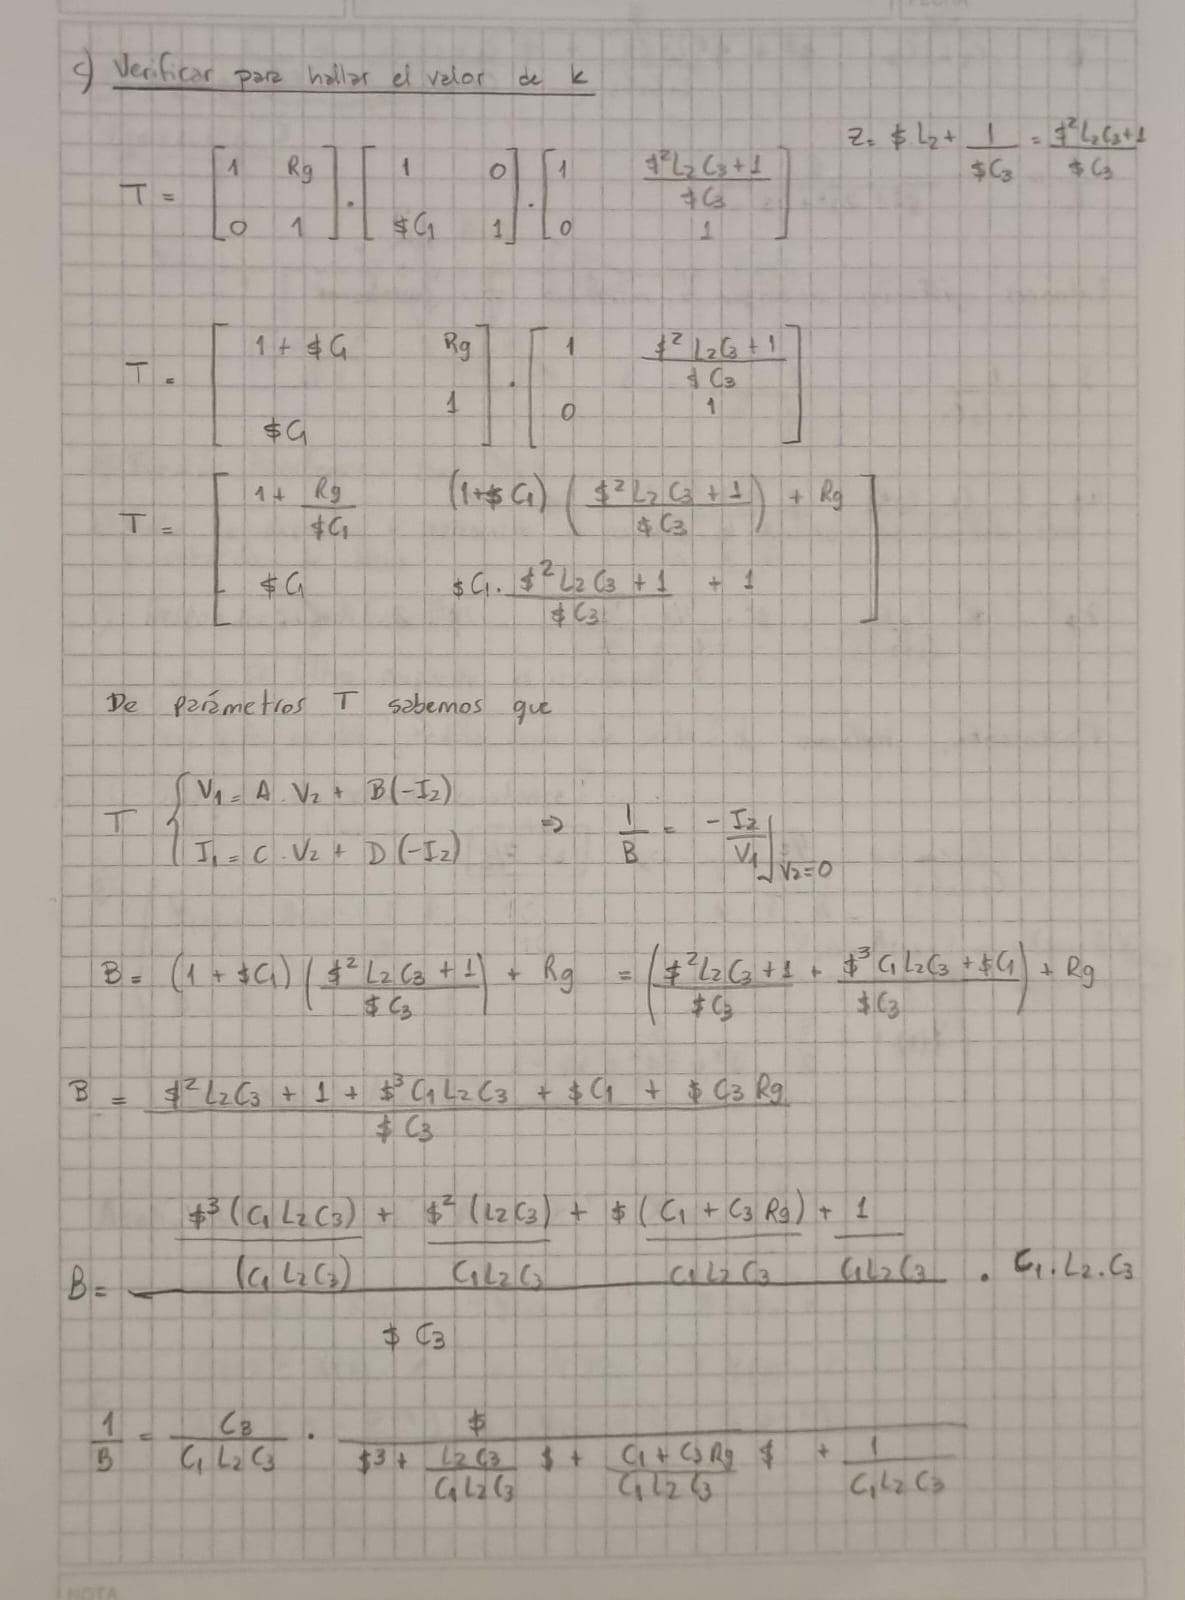 c) Verificar para hallar el valor de k
Z = $ L2 + 1/($C3) = ($²L2C3+1)/($C3)
T = [1 Rg; 0 1] . [1 0; $C1 1] . [1 ($²L2C3+1)/($C3); 0 1]
T = [1+$C1 Rg; $C1 1] . [1 ($²L2C3+1)/($C3); 0 1]
T = [1+Rg/($C1) (1+$C1)(($²L2C3+1)/($C3)) + Rg; $C1 $C1.($²L2C3+1)/($C3) + 1]
De parámetros T sabemos que
T { V1 = A.V2 + B(-I2)
I1 = C.V2 + D(-I2) ⇒ 1/B = -I2/V1 | V2=0
B = (1+$C1)(($²L2C3+1)/($C3)) + Rg = (($²L2C3+1)/($C3) + ($³C1L2C3+$C1)/($C3)) + Rg
B = ($²L2C3 + 1 + $³C1L2C3 + $C1 + $C3Rg)/($C3)
B = ($³(C1L2C3)/(C1L2C3) + $²(L2C3)/(C1L2C3) + $(C1+C3Rg)/(C1L2C3) + 1/(C1L2C3))/($C3) . C1.L2.C3
1/B = C3/(C1L2C3) . $/($3 + (L2C3)/(C1L2C3) $ + (C1+C3Rg)/(C1L2C3) $ + 1/(C1L2C3))
NOTA